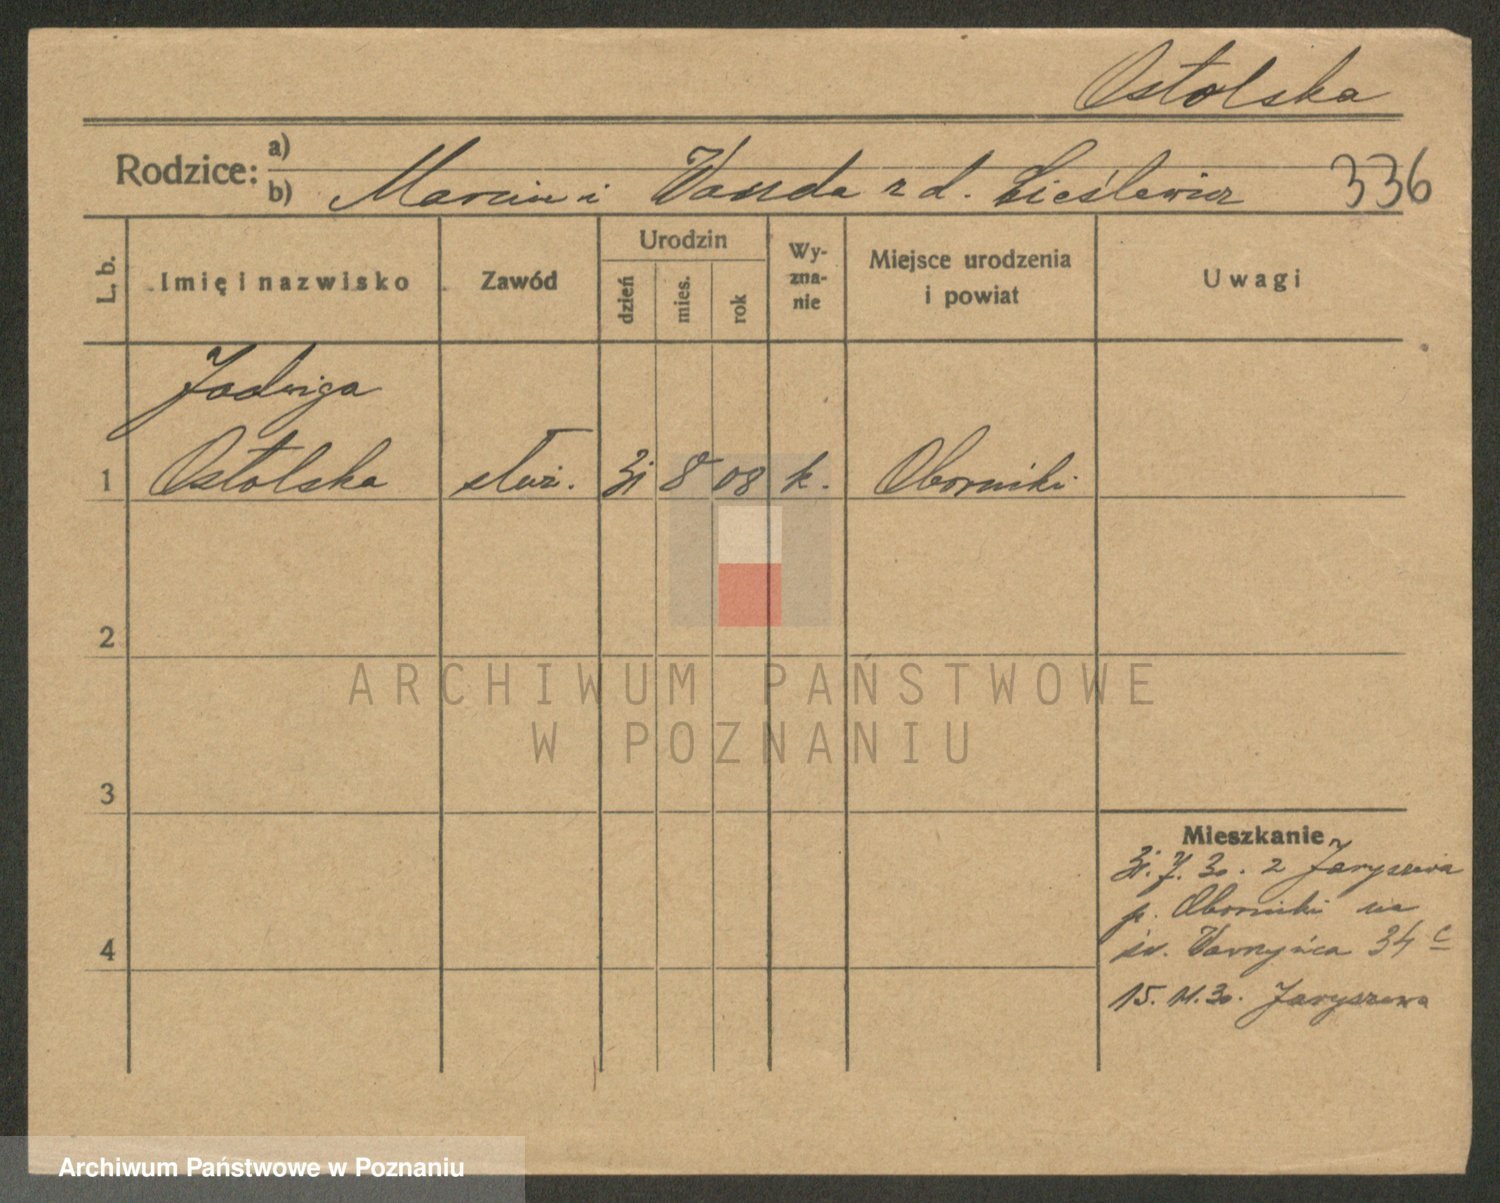 Ostolska
Rodzice: a)
b) Marcin i Wanda z d. Cieślewicz 336
L. b. Imię i nazwisko Zawód Urodzin dzień mies. rok Wyznanie Miejsce urodzenia i powiat Uwagi
Jadwiga
1 Ostolska służ. 31 8 08 k. Oborniki
2
3
4
Mieszkanie
31. 7. 30. z Jaryszewa
p. Oborniki na
św. Wawrzyńca 34 c
15. 11. 30. Jaryszewa
ARCHIWUM PAŃSTWOWE
W POZNANIU
Archiwum Państwowe w Poznaniu